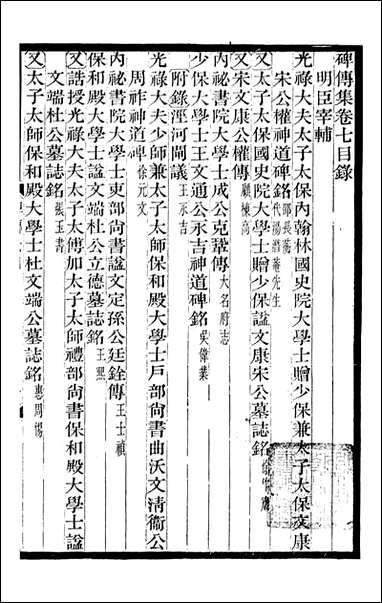 碑傳集卷七目錄
明臣宰輔
光祿大夫太子太保內翰林國史院大學士贈少保兼太子太保文康
宋公權神道碑銘 郎長蘅代湯潛菴先生
又太子太保國史院大學士贈少保諡文康宋公墓誌銘
又宋文康公權傳 顧棟高
內祕書院大學士成公克鞏傳 大名府志
少保大學士王文通公永吉神道碑銘 吳偉業
附錄涇河閘議 王永吉
光祿大夫少師兼太子太師保和殿大學士戶部尚書曲沃文清衞公
周祚神道碑 徐元文
內祕書院大學士吏部尚書諡文定孫公廷銓傳 王士禎
保和殿大學士諡文端杜公立德墓誌銘 王熙
又誥授光祿大夫太子太傅加太子太師禮部尚書保和殿大學士諡
文端杜公墓誌銘 張玉書
又太子太師保和殿大學士杜文端公墓誌銘 惠周惕